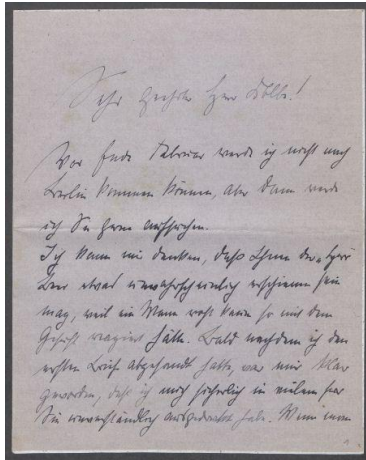 Sehr geehrter Herr Kolbe!
Vor Ende Februar werde ich nicht nach
Berlin kommen können, aber dann werde
ich Sie gerne aufsuchen.
Ich kann mir denken, daß Ihnen der "Herr
etwas unwahrscheinlich erschienen sein
mag, weil ein Mann wohl kaum so mit dem
Gesicht reagiert hätte. Bald nachdem ich den
ersten Brief abgesandt hatte, war mir klar
geworden, daß ich mich sicherlich in vielem für
Sie unverständlich ausgedrückt habe. Wenn man